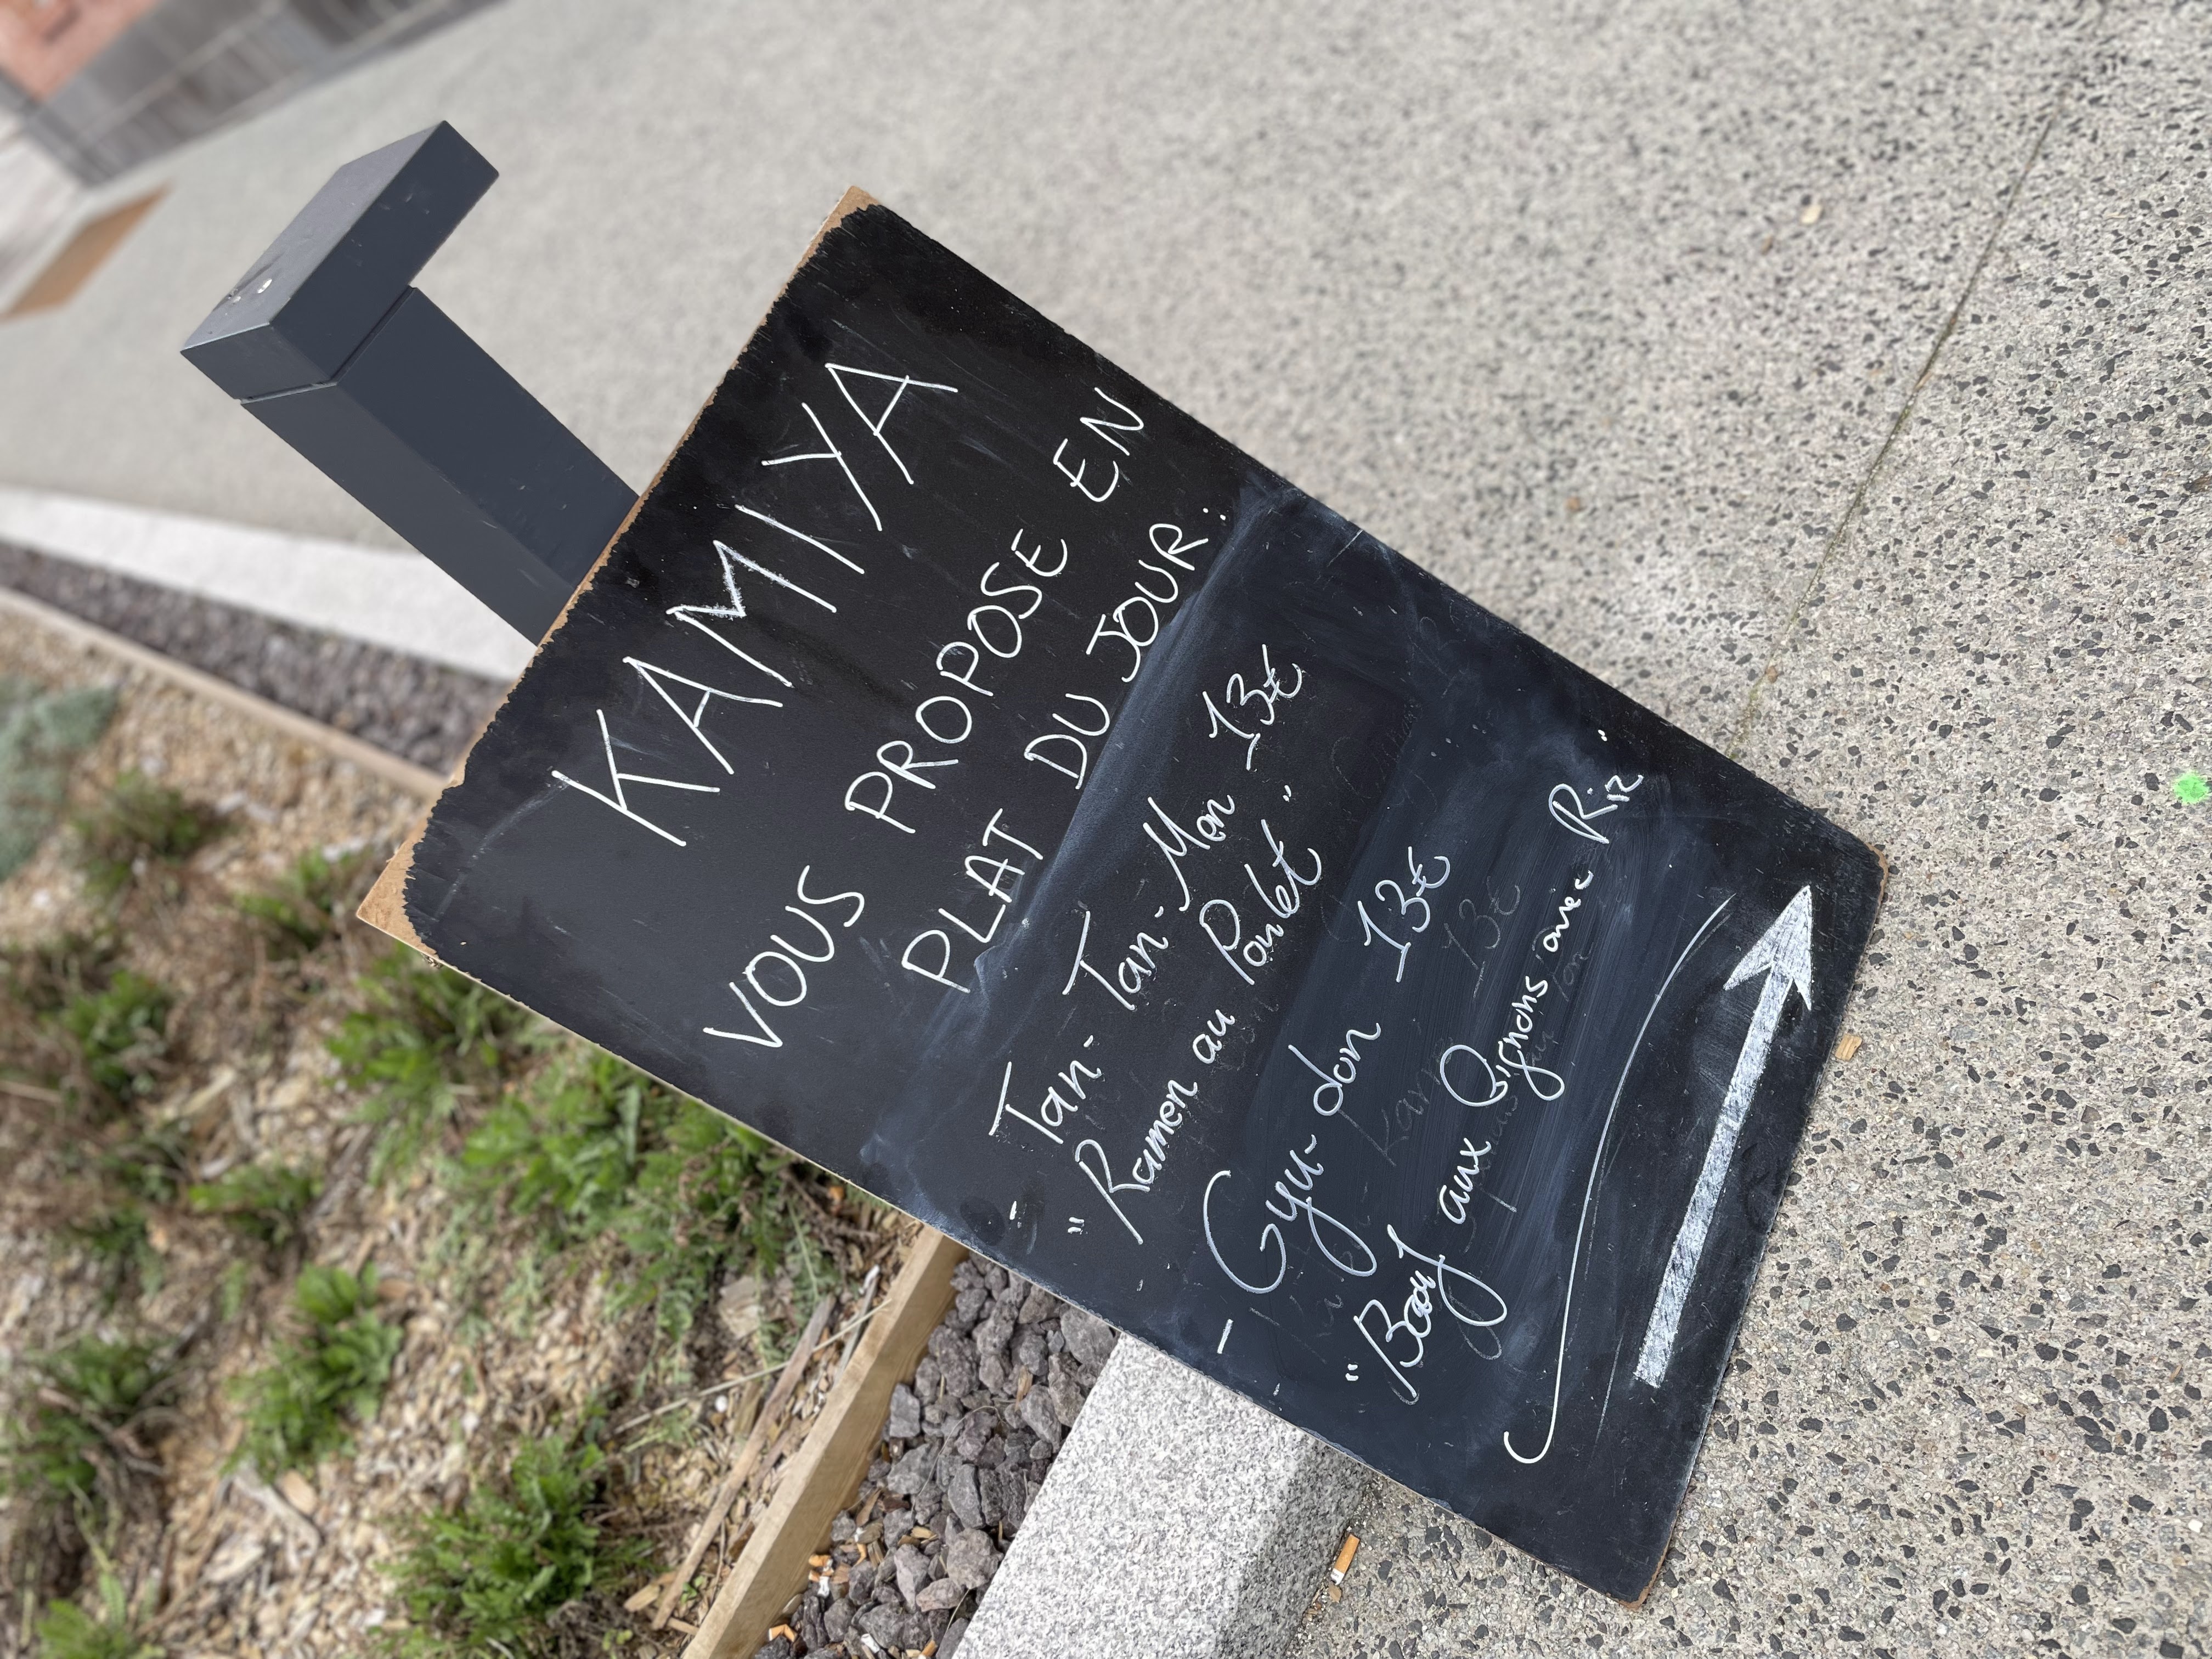 KAMIYA
VOUS PROPOSE EN
PLAT DU JOUR:
- Tan-Tan-Men 13€
"Ramen au Poulet"
- Gyu-don 13€
"Bœuf aux Oignons avec Riz"